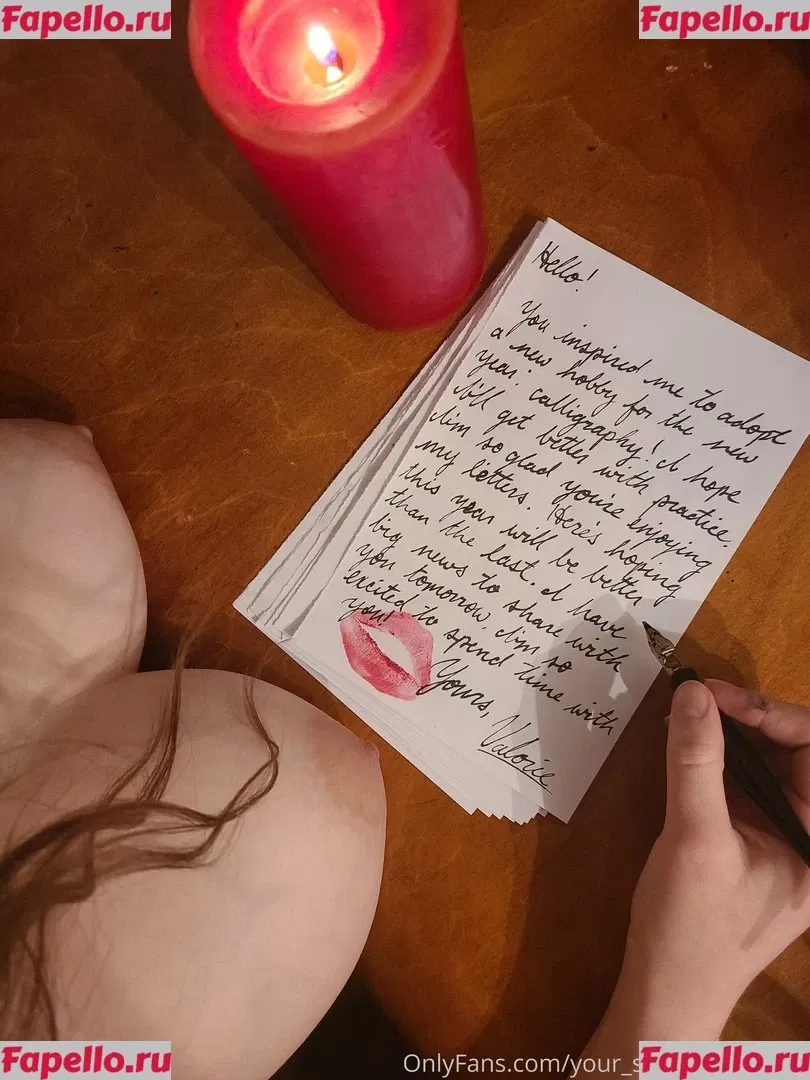 Fapello.ru
Fapello.ru
Hello!
You inspired me to adopt
a new hobby for the new
year: calligraphy! I hope
I'll get better with practice.
I'm so glad you're enjoying
my letters. Here's hoping
this year will be better
than the last. I have
big news to share with
you tomorrow. I'm so
excited to spend time with
you!
Yours,
Valorie
Fapello.ru
OnlyFans.com/your_s
Fapello.ru